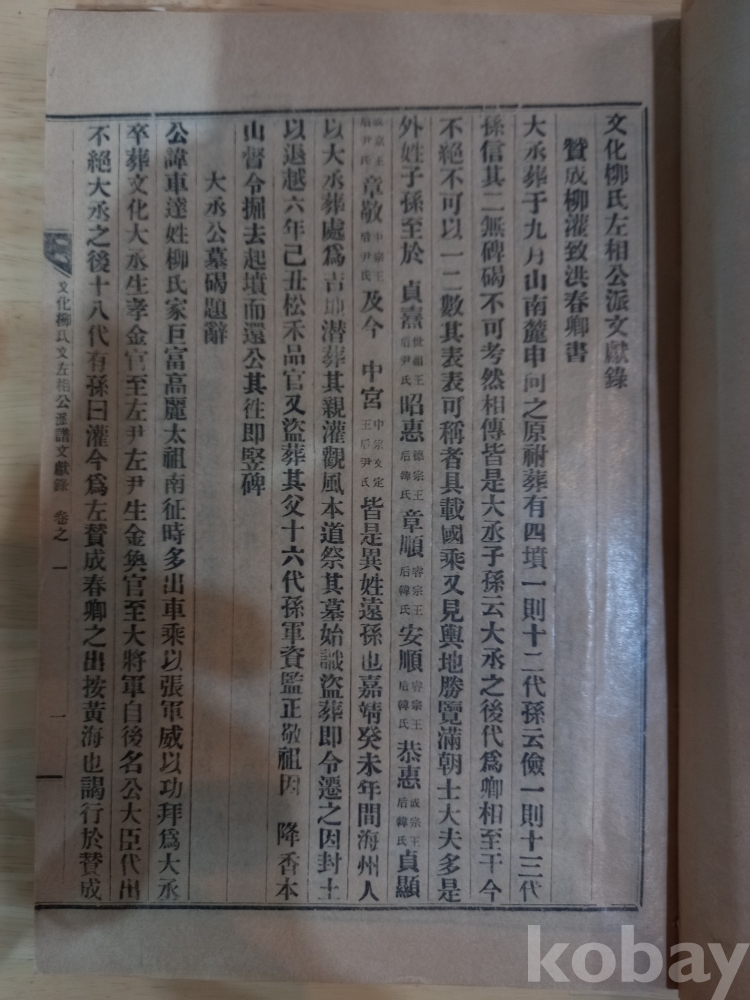 文化柳氏左相公派文獻錄
贊成柳灌致洪春卿書
大丞葬于九月山南麓申向之原祔葬有四墳一則十二代孫云儉一則十三代
孫信其二無碑碣不可考然相傳皆是大丞子孫云大丞之後代爲卿相至于今
不絕不可以一二數其表表可稱者具載國乘又見輿地勝覽滿朝士大夫多是
外姓子孫至於 貞熹世祖王后尹氏昭惠德宗王后韓氏章順睿宗王后韓氏安順睿宗王后韓氏恭惠成宗王后韓氏貞顯
成宗王后尹氏章敬中宗王后尹氏及今 中宮中宗文定王后尹氏皆是異姓遠孫也嘉靖癸未年間海州人
以大丞葬處爲吉地潜葬其親灌觀風本道祭其墓始識盜葬即令遷之因封土
以退越六年己丑松禾品官又盜葬其父十六代孫軍資監正敬祖因 降香本
山督令掘去起墳而還公其徃即竪碑
大丞公墓碣題辭
公諱車達姓柳氏家巨富高麗太祖南征時多出車乘以張軍威以功拜爲大丞
卒葬文化大丞生孝金官至左尹左尹生金奐官至大將軍自後名公大臣代出
不絕大丞之後十八代有孫曰灌今爲左贊成春卿之出按黃海也謁行於贊成
文化柳氏文左相公派譜文獻錄 卷之一 一
kobay